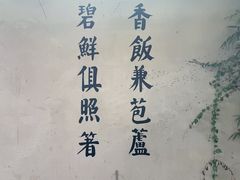 香飯兼苞蘆
碧鮮俱照箸